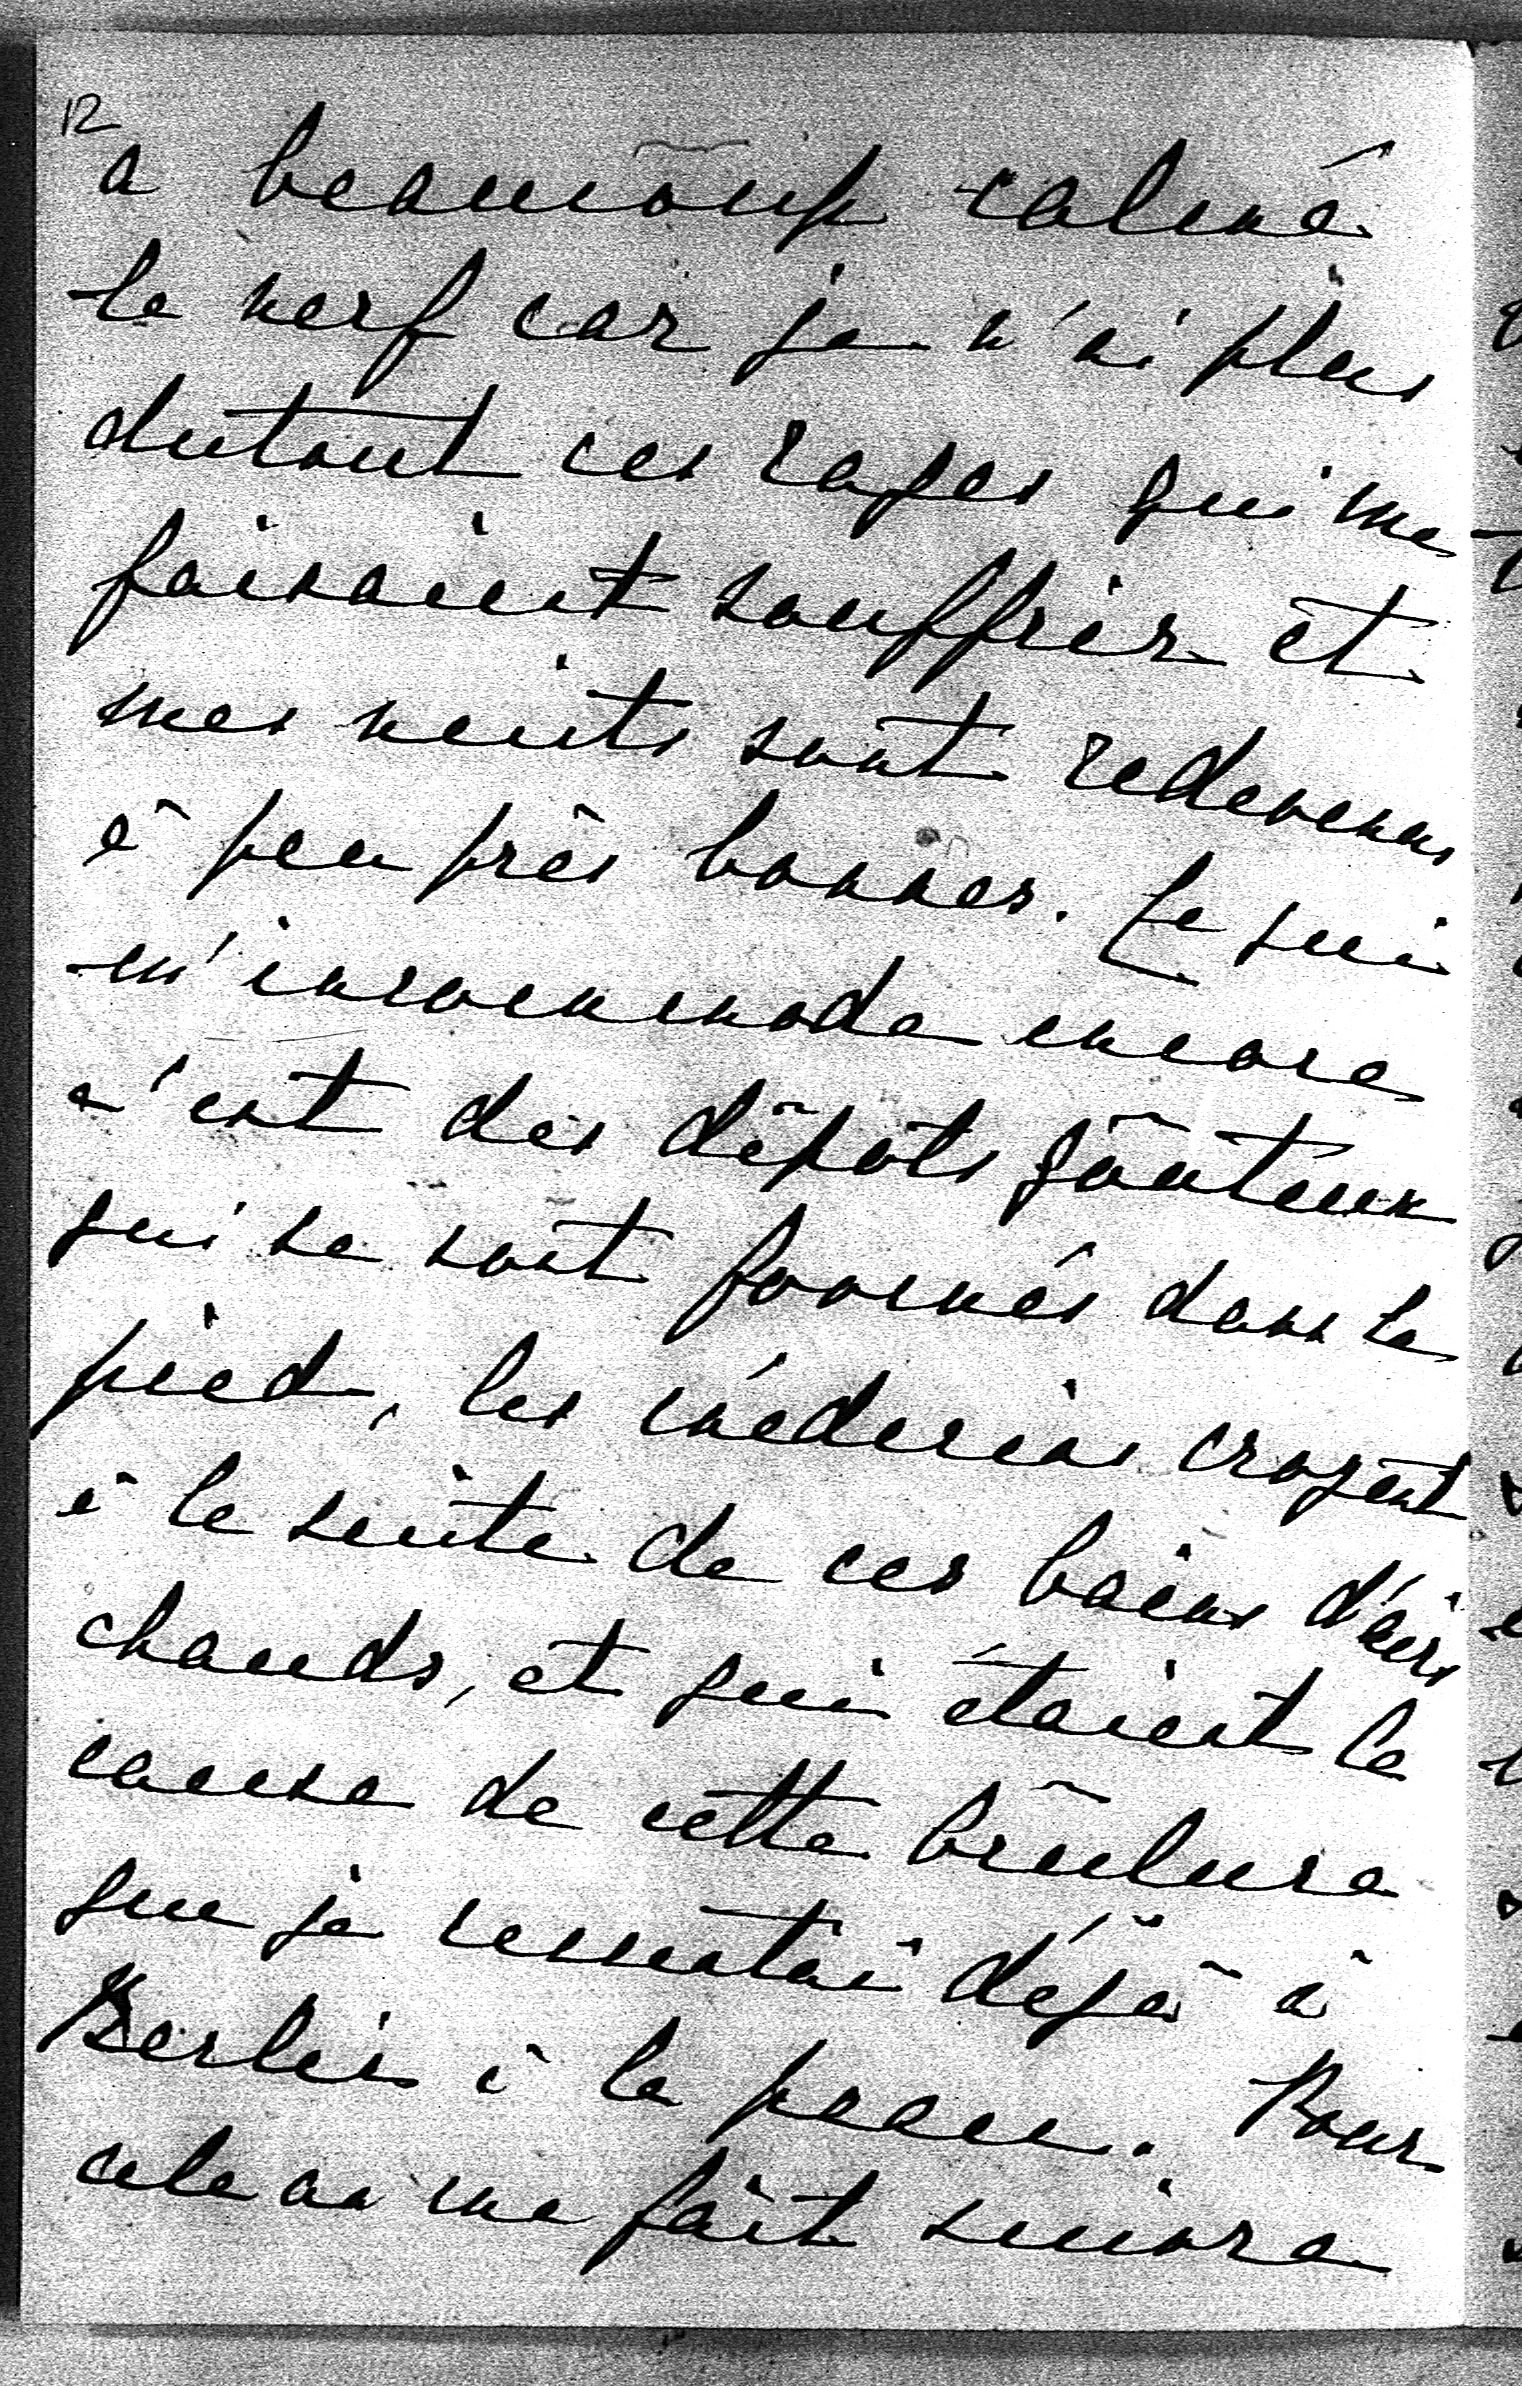 12
a beaucoup calmé
le nerf car je n'ai plus
dutout ces rages qui me
faisaient souffrir et
mes nuits sont redevenues
à peu près bonnes. Ce qui
m'incommode encore
c'est des dépôts goûteux
qui se sont formés dans le
pied, les médecins croyent
à la suite de ces bains d'airs
chauds, et qui étaient la
cause de cette brûlure
que je ressentai déjà à
Berlin à la peau. Pour
cela on me fait suivre